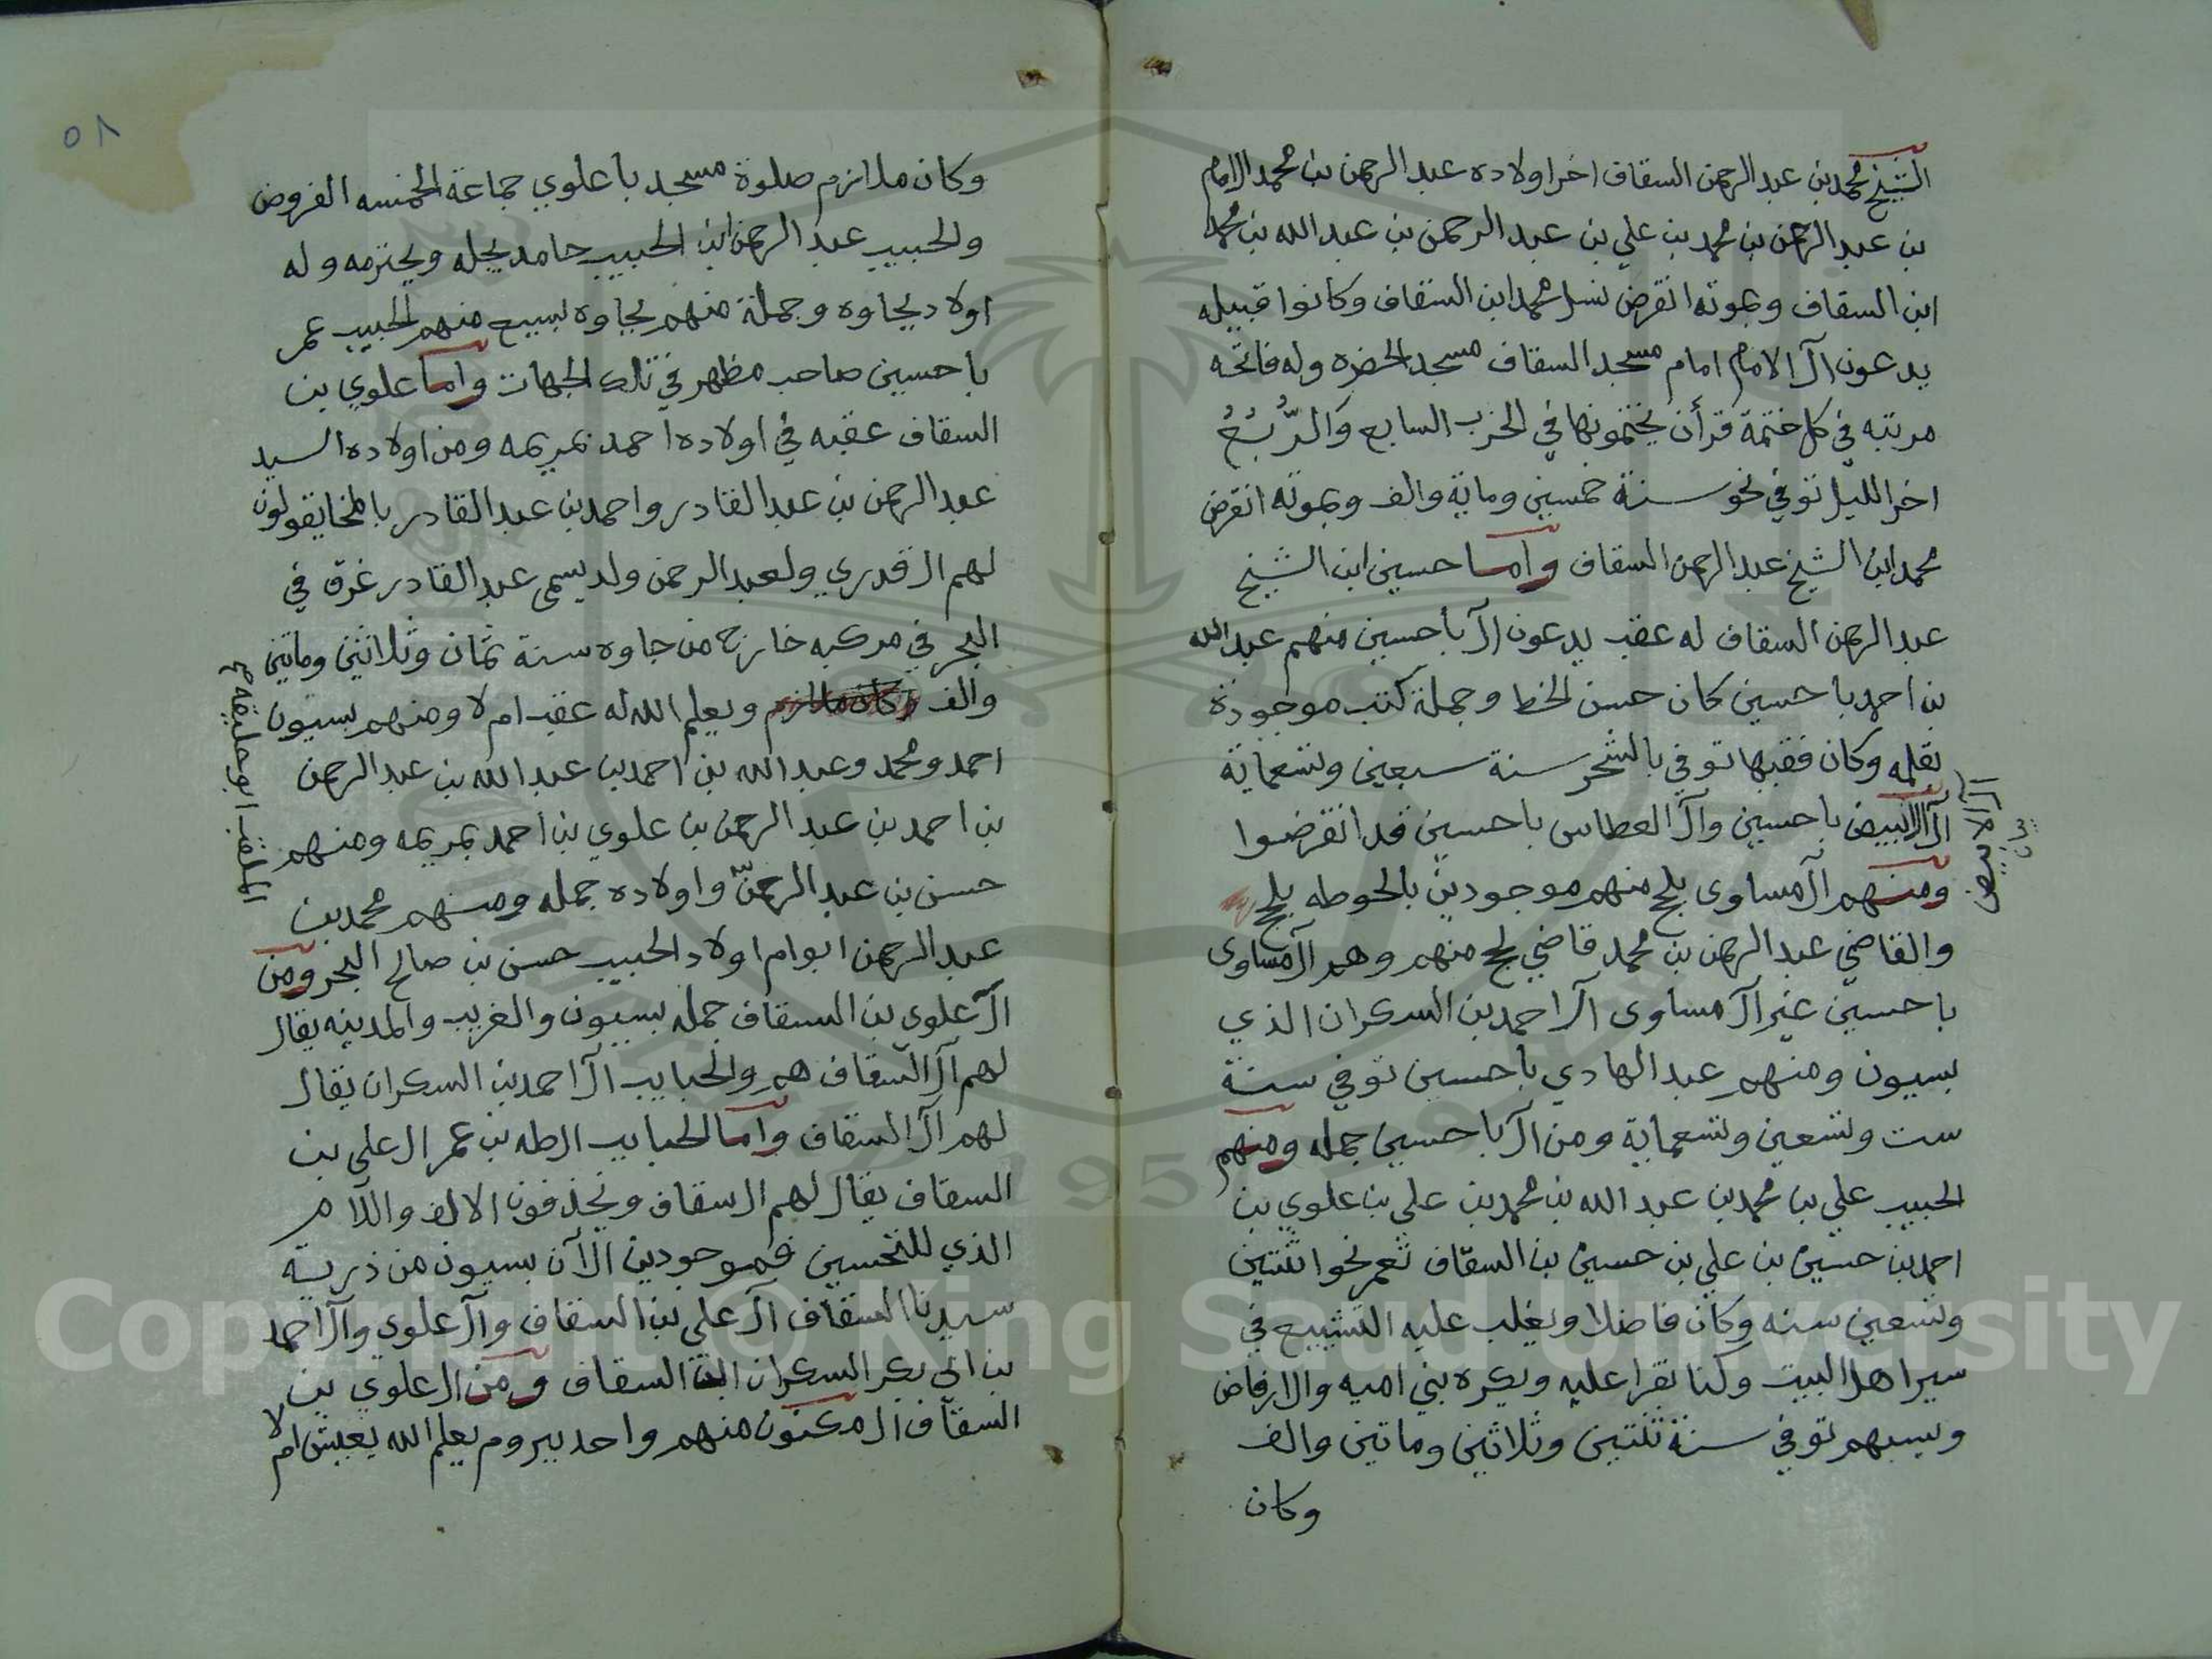 الشيخ محمد بن عبد الرحمن السقاف اخر اولاده عبد الرحمن بن محمد الامام
بن عبد الرحمن بن محمد بن علي بن عبد الرحمن بن عبد الله بن محمد
ابن السقاف وبموته انقرض نسل محمد ابن السقاف وكانوا قبيله
يدعون آل الامام امام مسجد السقاف مسجد الحضره وله فاتحه
مرتبه في كل ختمة قرأن يختمونها في الحزب السابع والرُّبُعْ
اخر الليل توفي نحو سنة خمسين وماية والف وبموته انقرض
محمد ابن الشيخ عبد الرحمن السقاف واما حسين ابن الشيخ
عبد الرحمن السقاف له عقب يدعون آل باحسين منهم عبد الله
بن احمد باحسين كان حسن الخط وجملة كتب موجودة
بقلمه وكان فقيها توفي بالشحر سنة سبعين وتسعماية
آل الابيض باحسين وآل العطاس باحسين قد انقرضوا
ومنهم آل مساوى بلحج منهم موجودين بالحوطه بلحج
والقاضي عبد الرحمن بن محمد قاضي لحج منهم وهم آل مساوى
باحسين غير آل مساوى آل احمد بن السكران الذي
بسيون ومنهم عبد الهادي باحسين توفي سنة
ست وتسعين وتسعماية ومن آل باحسين جمله ومنهم
الحبيب علي بن محمد بن عبد الله بن محمد بن علي بن علوي بن
احمد بن حسين بن علي بن حسين بن السقاف تعمر نحو اثنتين
وتسعين سنه وكان فاضلا ويغلب عليه التشييع في
سير اهل البيت وكنا نقرا عليه ويكره بني اميه والارفاض
ويسبهم توفي سنة ثنتين وثلاثين وماتين والف
وكان
آل الابيض
٥٨
وكان ملازم صلوة مسجد باعلوي جماعة الخمسه الفروض
والحبيب عبد الرحمن ابن الحبيب حامد يجله ويحترمه وله
اولاد بجاوه وجملة منهم بجاوه لسبيح منهم الحبيب عمر
باحسين صاحب مظهر في تلك الجهات واما علوي بن
السقاف عقبه في اولاده احمد بمريمه ومن اولاده السيد
عبد الرحمن بن عبد القادر واحمد بن عبد القادر بالمخا يقولون
لهم ال قدري ولعبد الرحمن ولد يسمى عبد القادر غرق في
البحر في مركبه خارج من جاوه سنة ثمان وثلاثين وماتين
والف وكان ملازم ويعلم الله له عقب ام لا ومنهم بسيون
احمد ومحمد وعبد الله بن احمد بن عبد الله بن عبد الرحمن
بن احمد بن عبد الرحمن بن علوي بن احمد بمريمه ومنهم
حسن بن عبد الرحمن واولاده جمله ومنهم محمد بن
عبد الرحمن ابو ام اولاد الحبيب حسن بن صالح البحر ومن
آل علوي بن السقاف جمله بسيون والغريب والمدينه يقال
لهم آل السقاف هم والحبايب آل احمد بن السكران يقال
لهم آل السقاف واما الحبايب ال طه بن عمر ال علي بن
السقاف يقال لهم ال سقاف ويحذفون الالف واللام
الذي للتحسين فموجودين الآن بسيون من ذرية
سيدنا السقاف آل علي بن السقاف وآل علوي وآل احمد
بن ابي بكر السكران ابن السقاف ومن ال علوي بن
السقاف ال مكنون منهم واحد بيروم يعلم الله يعيش ام لا
الملقب ابو حليقه